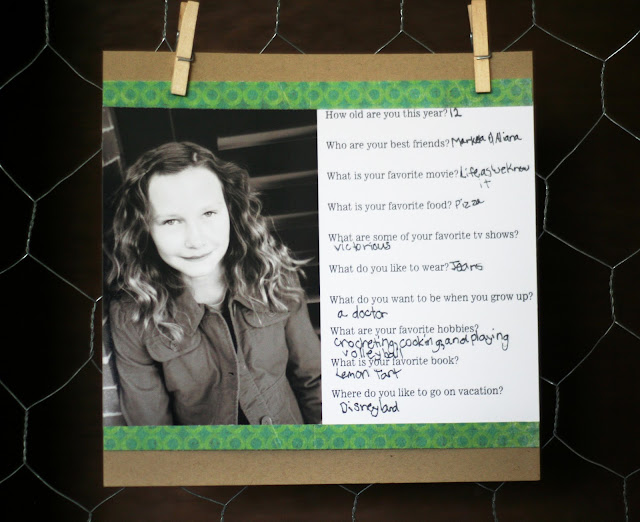 How old are you this year? 12
Who are your best friends? Markesa & Aliana
What is your favorite movie? Life as we Know
it
What is your favorite food? Pizza
What are some of your favorite tv shows?
victorious
What do you like to wear? Jeans
What do you want to be when you grow up?
a doctor
What are your favorite hobbies?
Crocheting, cooking, and playing
volleyball
What is your favorite book?
Lemon Tart
Where do you like to go on vacation?
Disneyland